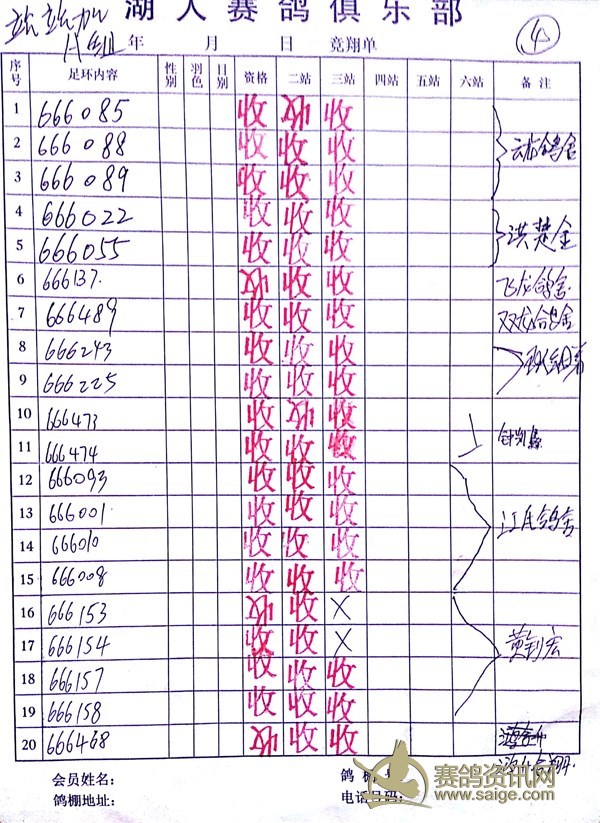 湖人赛鸽俱乐部
站站加
A组 年 月 日 竞翔单 4
序号 足环内容 性别 羽色 日别 资格 二站 三站 四站 五站 六站 备注
1 666085 收 收 收
2 666088 收 收 收
3 666089 收 收 收
4 666022 收 收 收 洪楚金
5 666055 收 收 收
6 666137. 收 收 收 飞龙鸽舍
7 666489 收 收 收 双龙鸽舍
8 666243 收 收 收
9 666225 收 收 收
10 666473 收 收 收
11 666474 收 收
12 666093 收 收 收
13 666001 收 收 收 江氏鸽舍
14 666010 收 收 收
15 666008 收 收 收
16 666153 收 收 X
17 666154 收 收 X
18 666157 收 收 收
19 666158 收 收 收
20 666468 收 收 收
会员姓名: 鸽
鸽棚地址: 电话号码:
赛鸽资讯网
www.saige.com